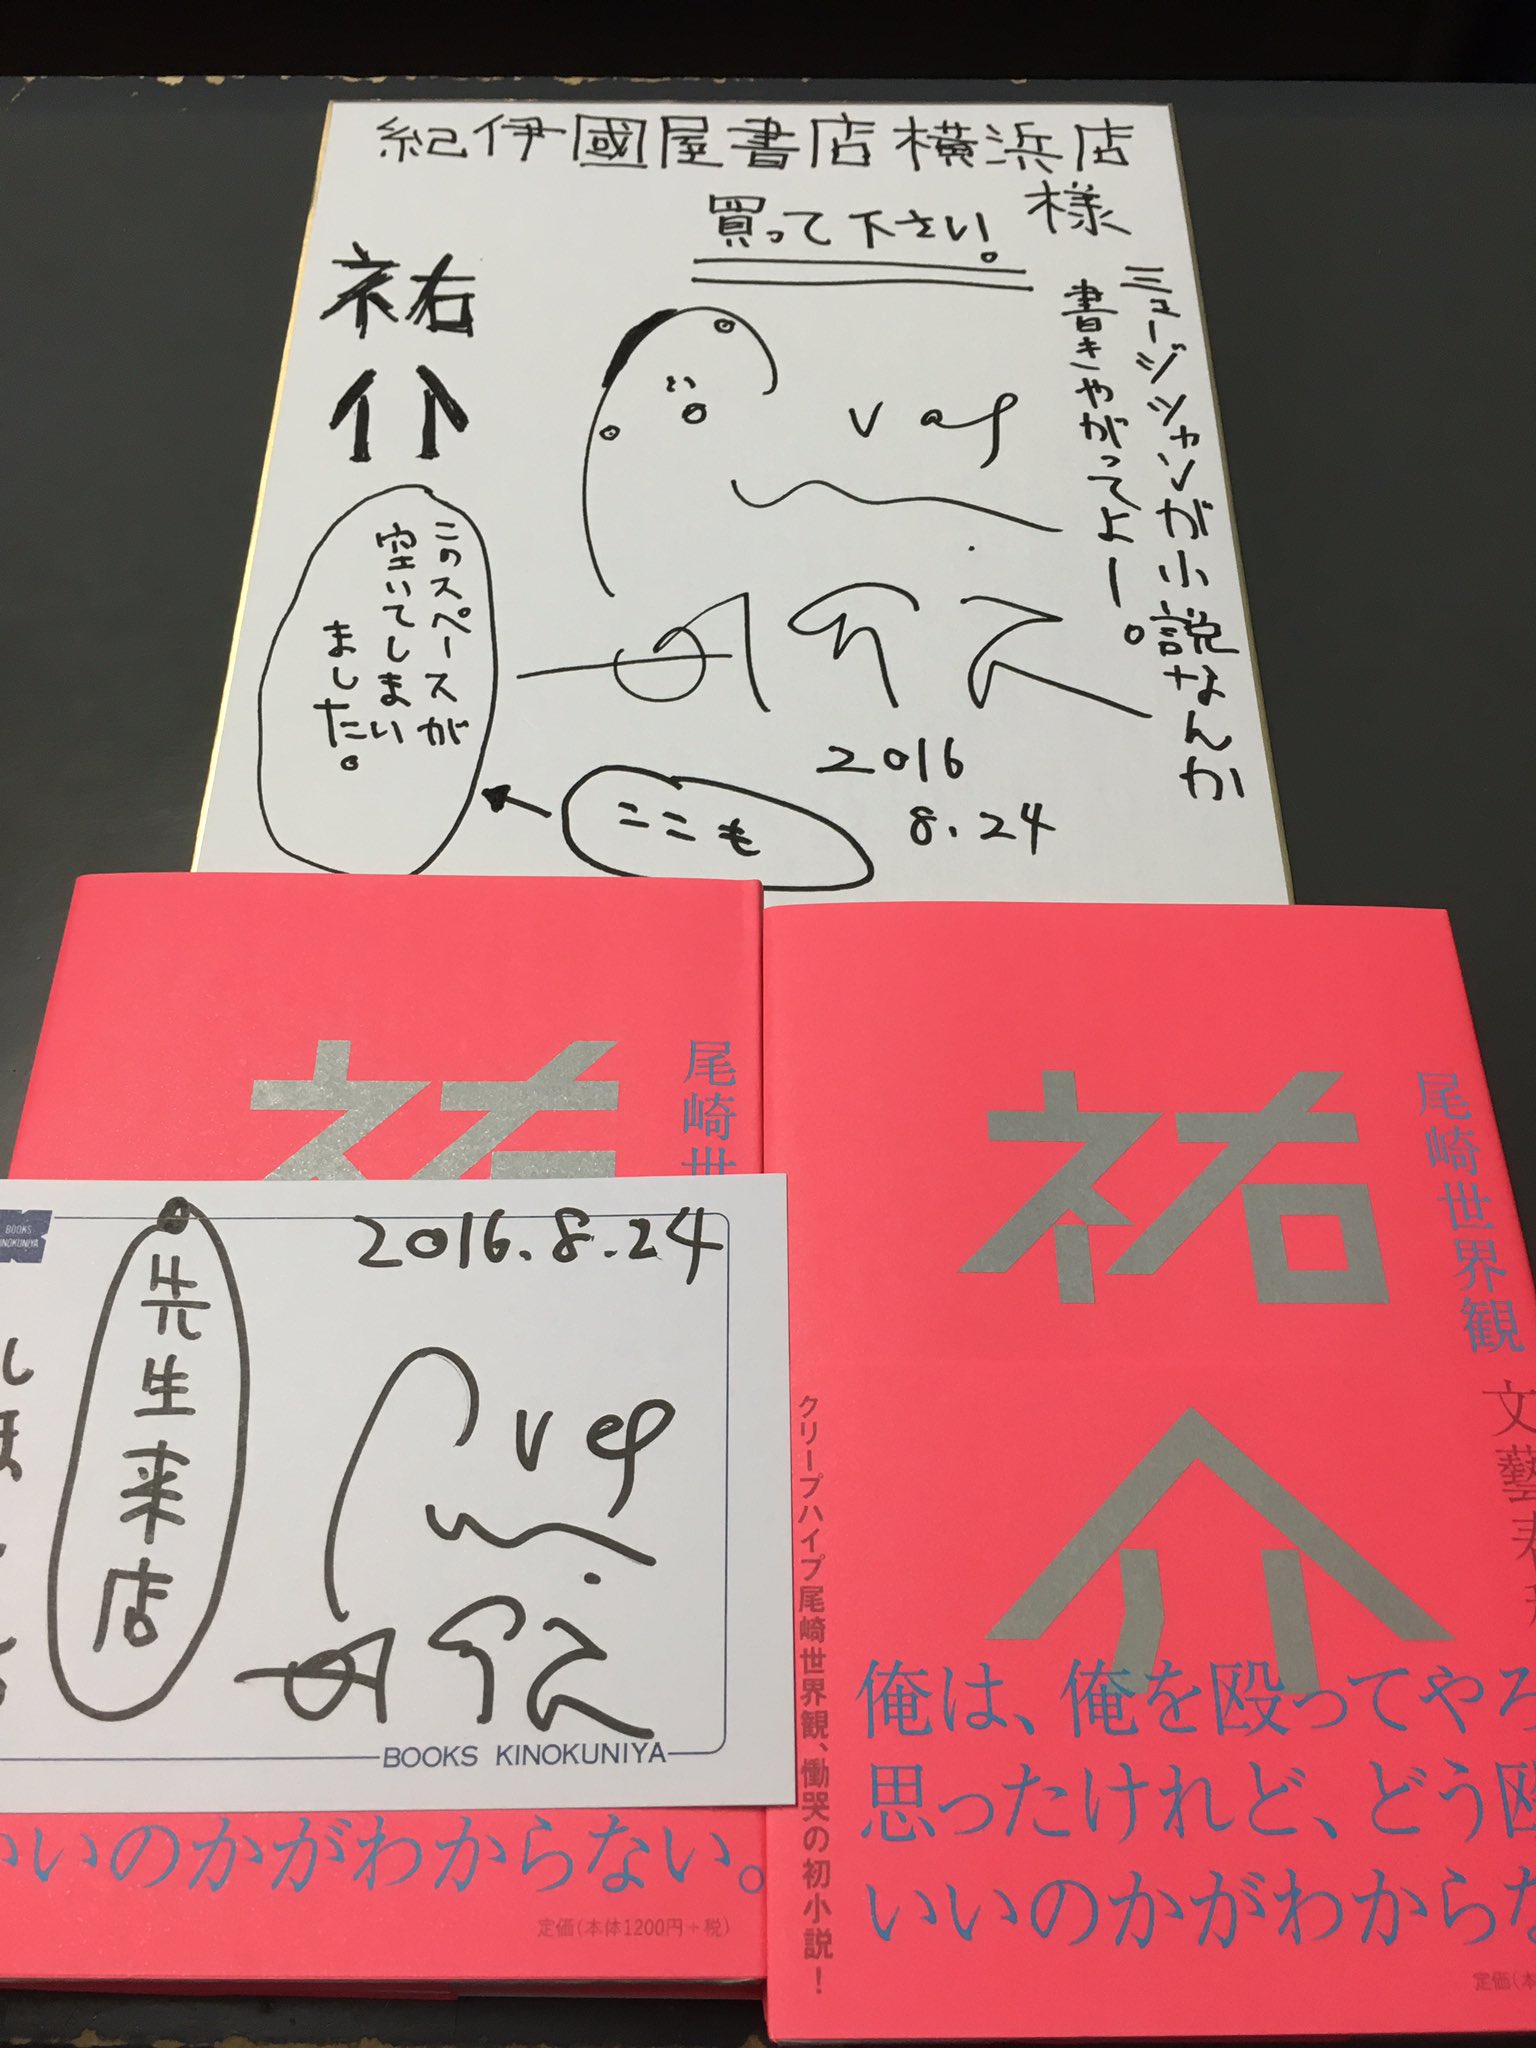 紀伊國屋書店横浜店
様
買って下さい。
ミュージシャンが小説なんか
書きやがってよー。
祐介
このスペースが
空いてしまい
ました。
ここも
2016
8.24
尾崎世
祐
BOOKS
2016.8.24
先生来店
BOOKS KINOKUNIYA
いいのかがわからない。
定価(本体1200円+税)
尾崎世界観
祐介
クリープハイプ尾崎世界観、慟哭の初小説!
俺は、俺を殴ってやろ
思ったけれど、どう殴
いいのかがわからな
定価(本